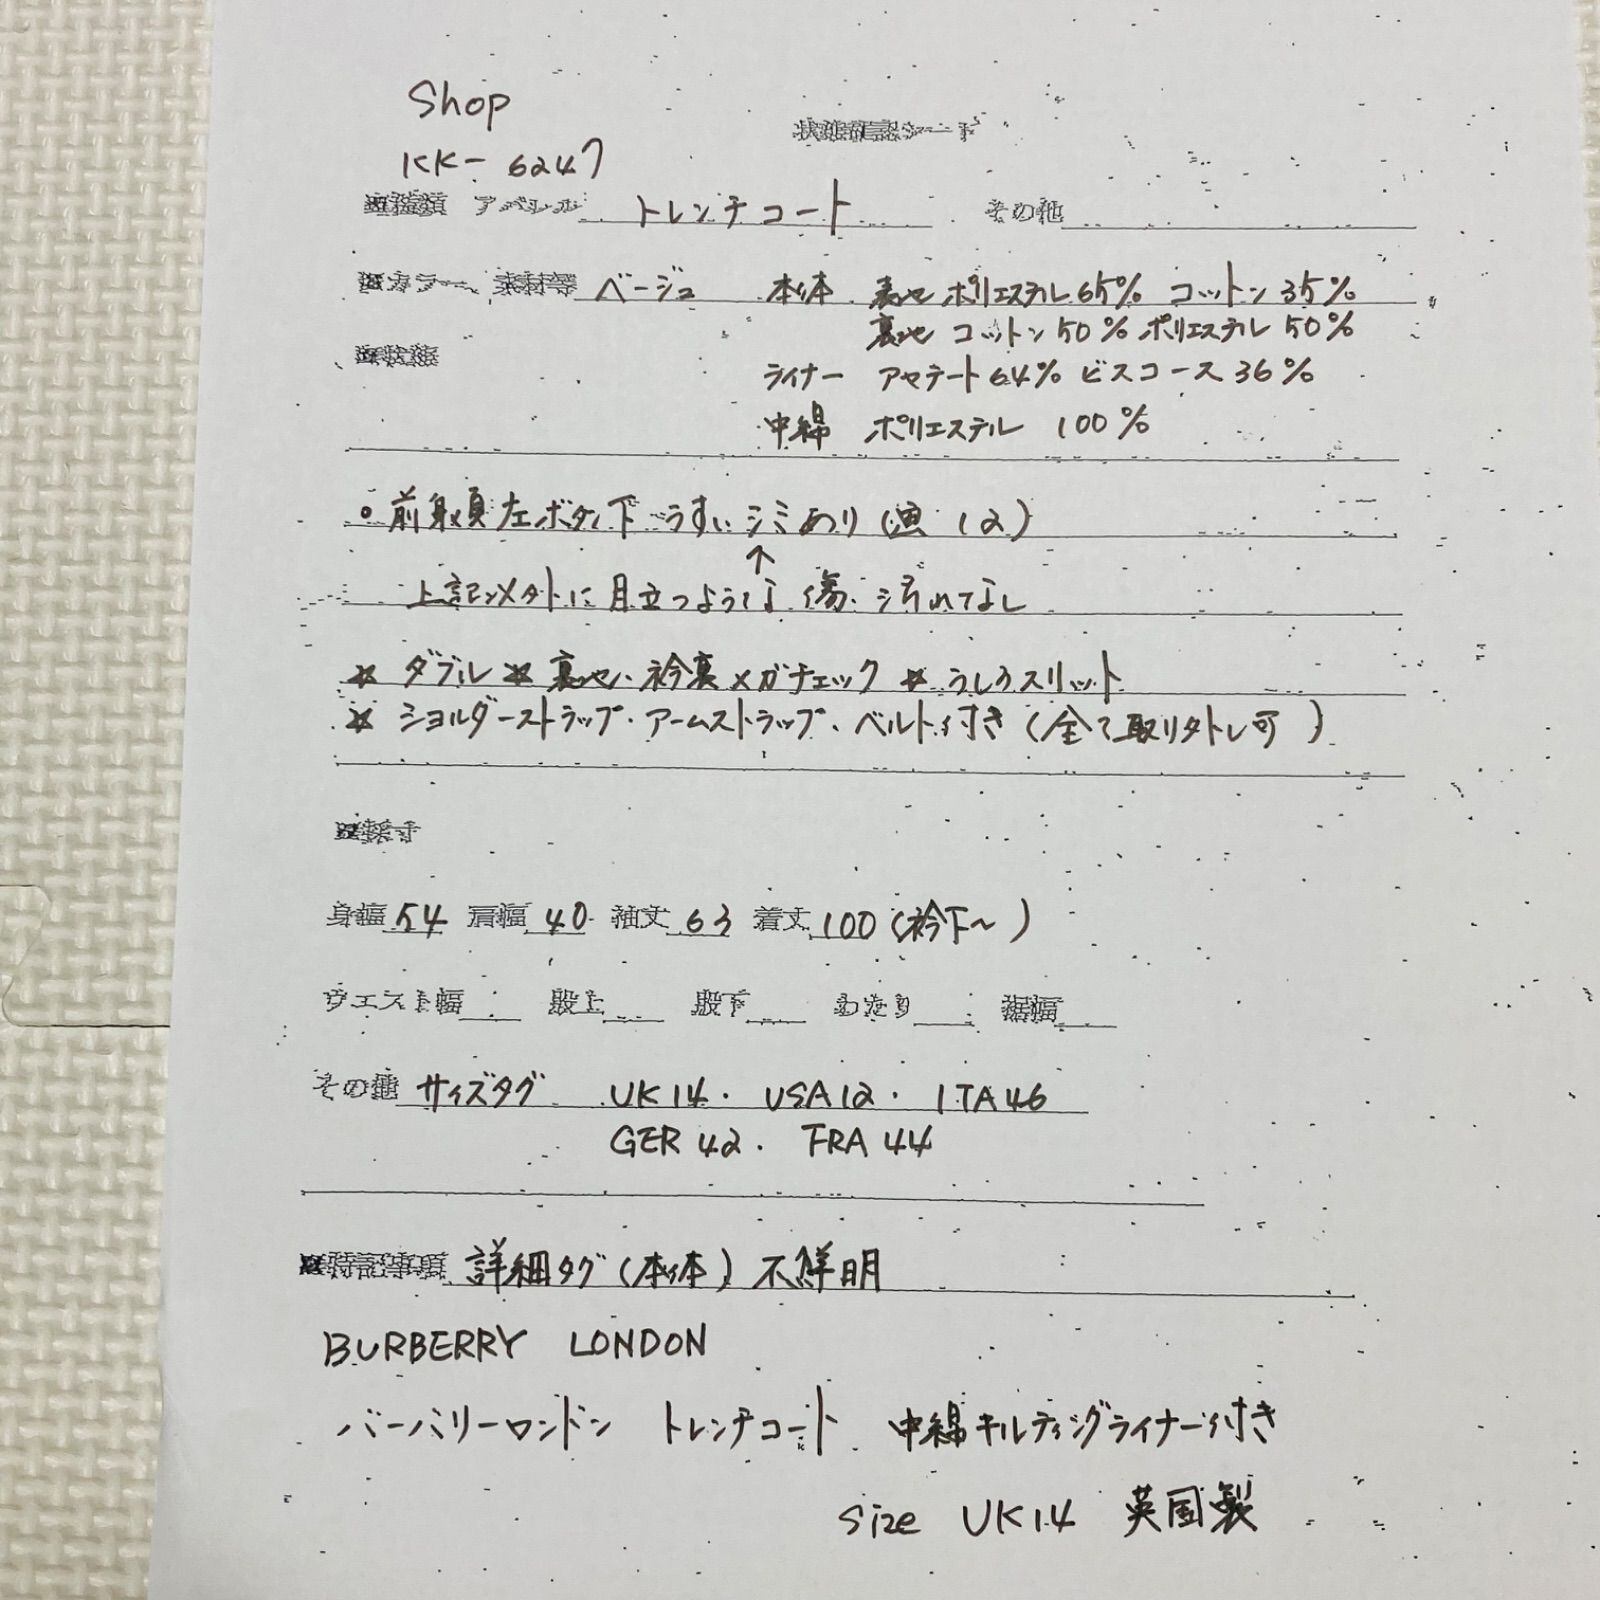 Shop
状態確認シート
KK-6247
■種類 アパレル トレンチコート その他
■カラー、素材等 ベージュ 本体 表地 ポリエステル65% コットン35%
裏地 コットン50% ポリエステル50%
■状態
ライナー アセテート64% ビスコース36%
中綿 ポリエステル 100%
・前身頃左ボタン下 うすいシミあり(画 12)
↑
上記以外に目立つような傷、汚れてなし
☆ ダブル ☆ 裏地・衿裏メガチェック ☆ うしろスリット
☆ ショルダーストラップ・アームストラップ・ベルト付き(全て取り外し可)
■採寸
身幅 54 肩幅 40 袖丈 63 着丈 100(衿下~)
ウエスト幅 股上 股下 わたり 裾幅
その他 サイズタグ UK14・ USA12・ ITA46
GER 42・ FRA 44
■特記事項 詳細タグ(本体)不鮮明
BURBERRY LONDON
バーバリーロンドン トレンチコート 中綿キルティングライナー付き
size UK14 英国製